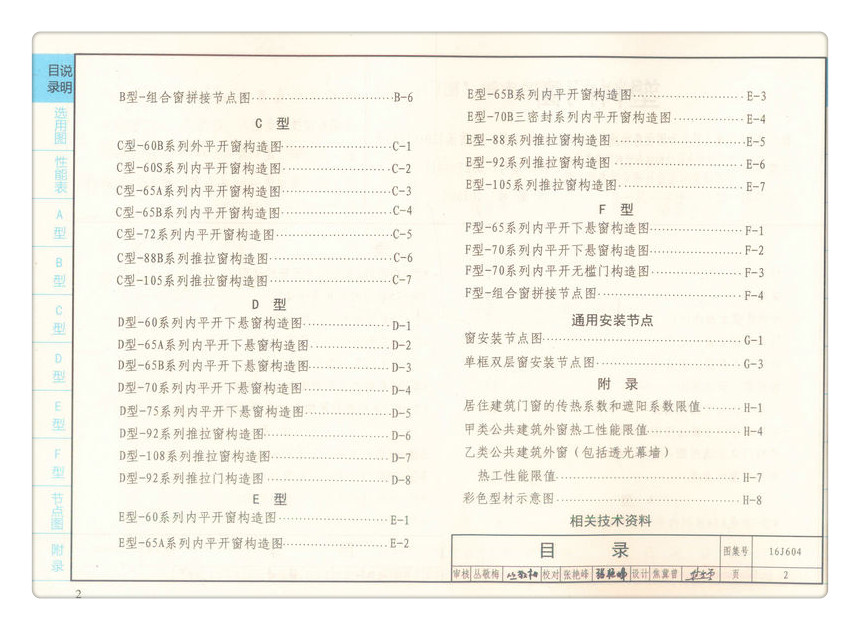 目录 说明
选用图
性能表
A型
B型
C型
D型
E型
F型
节点图
附录
B型-组合窗拼接节点图……………………B-6
C 型
C型-60B系列外平开窗构造图……………………C-1
C型-60S系列内平开窗构造图……………………C-2
C型-65A系列内平开窗构造图……………………C-3
C型-65B系列内平开窗构造图……………………C-4
C型-72系列内平开窗构造图……………………C-5
C型-88B系列推拉窗构造图……………………C-6
C型-105系列推拉窗构造图……………………C-7
D 型
D型-60系列内平开下悬窗构造图……………………D-1
D型-65A系列内平开下悬窗构造图……………………D-2
D型-65B系列内平开下悬窗构造图……………………D-3
D型-70系列内平开下悬窗构造图……………………D-4
D型-75系列内平开下悬窗构造图……………………D-5
D型-92系列推拉窗构造图……………………D-6
D型-108系列推拉窗构造图……………………D-7
D型-92系列推拉门构造图……………………D-8
E 型
E型-60系列内平开窗构造图……………………E-1
E型-65A系列内平开窗构造图……………………E-2
E型-65B系列内平开窗构造图……………………E-3
E型-70B三密封系列内平开窗构造图……………………E-4
E型-88系列推拉窗构造图……………………E-5
E型-92系列推拉窗构造图……………………E-6
E型-105系列推拉窗构造图……………………E-7
F 型
F型-65系列内平开下悬窗构造图……………………F-1
F型-70系列内平开下悬窗构造图……………………F-2
F型-70系列内平开无槛门构造图……………………F-3
F型-组合窗拼接节点图……………………F-4
通用安装节点
窗安装节点图……………………G-1
单框双层窗安装节点图……………………G-3
附 录
居住建筑门窗的传热系数和遮阳系数限值………H-1
甲类公共建筑外窗热工性能限值……………………H-4
乙类公共建筑外窗（包括透光幕墙）
热工性能限值……………………H-7
彩色型材示意图……………………H-8
相关技术资料
目 录 图集号 16J604
审核 丛敬梅 丛敬梅 校对 张艳峰 张艳峰 设计 焦冀曾 页 2
2